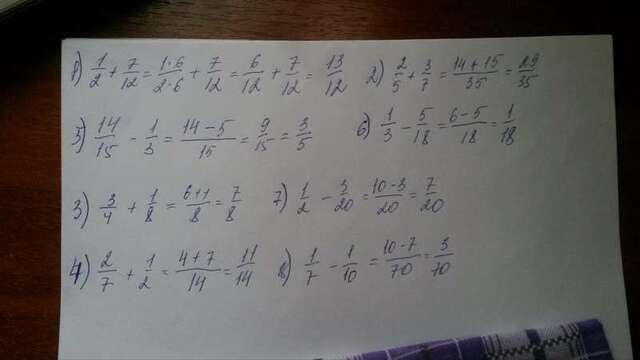 1) 1/2 + 7/12 = 1·6/2·6 + 7/12 = 6/12 + 7/12 = 13/12 2) 2/5 + 3/7 = 14+15/35 = 29/35
5) 14/15 - 1/3 = 14-5/15 = 9/15 = 3/5 6) 1/3 - 5/18 = 6-5/18 = 1/18
3) 3/4 + 1/8 = 6+1/8 = 7/8 7) 1/2 - 3/20 = 10-3/20 = 7/20
4) 2/7 + 1/2 = 4+7/14 = 11/14 8) 1/7 - 1/10 = 10-7/70 = 3/70